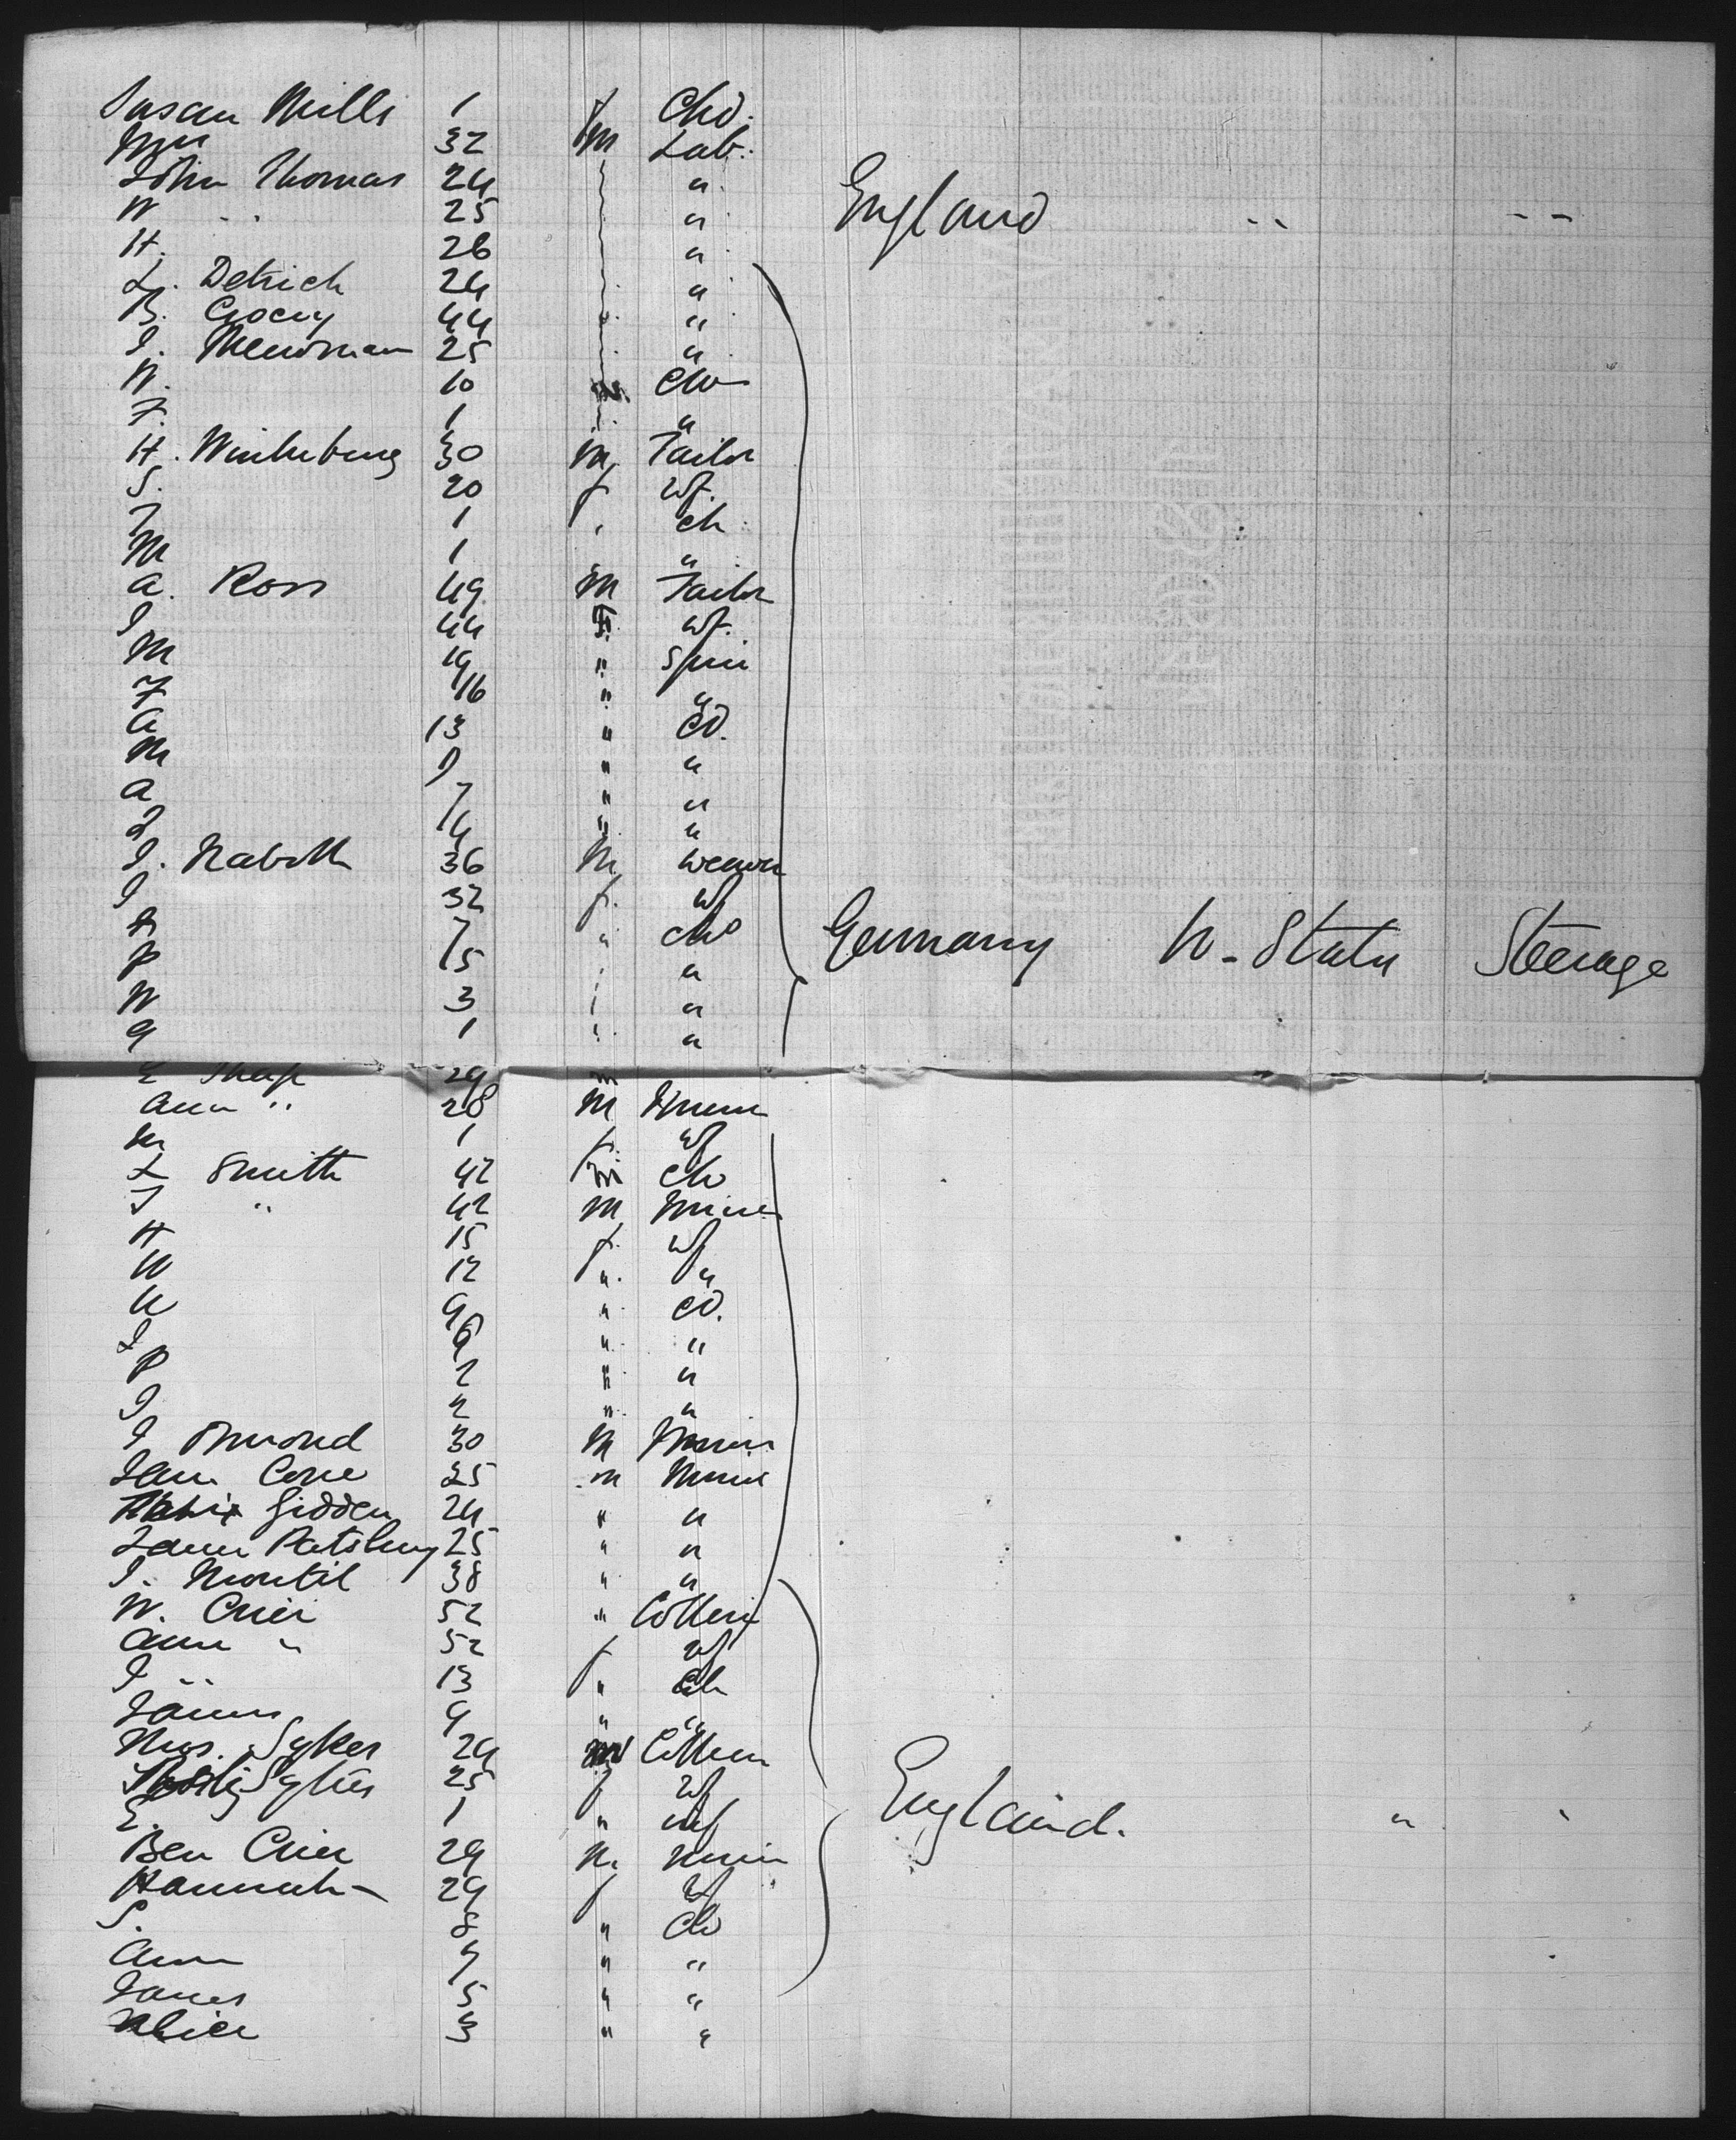 Susan Mills 1 f Chd.
Wm 32 m Lab.
John Thomas 24 " "
W " 25 " "
H. 26 "
L. Detrich 24 "
B. 44 "
I. 25 "
W. 10 Chd
F. 1 "
H. Winterburg 30 m Tailor
S. 20 f wf.
J 1 " ch
M 1 "
A. Ross 49 m Tailor
I 44 F. wf.
M 19 " Spin
F 16 " "
A 13 " Cd.
M 9 " "
A 7 " "
L 4 " "
I. Naboth 36 m weaver
I 32 f. wf
7 " chd
P 5 " "
W 3 " "
G 1 " "
England " "
Germany U-States Steerage
E 29 m
Ann " 28 m
M 1 f wf
L Smith 42 m Ch
J " 42 m Miner
H 15 f. wf
W 12 " "
U 9 " Cd.
I 6 " "
P 2 " "
I 2 " "
I Ormond 30 m
25 m Miner
Gidden 24 " "
25 " "
I. 38 " "
W. Crier 52 " Collier
Ann " 52 f wf
I " 13 " Ch
James 9 " "
Sykes 29 m Collier
Sykes 25 f wf
E. 1 " inf
Ben Crier 29 m Miner
Hannah - 29 f wf
S. 8 " Ch
Ann 7 " "
James 5 " "
Alice 3 " "
England. " "